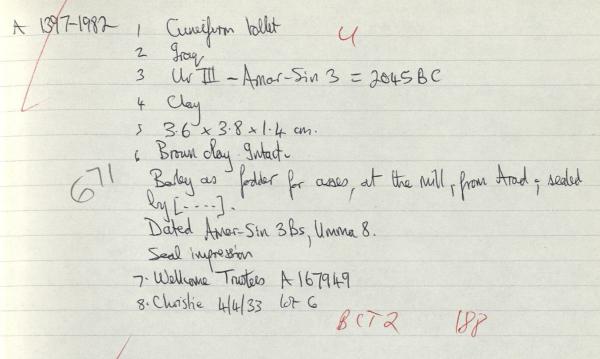 A 1397-1982 1 Cuneiform tablet 4
2 Iraq
3 Ur III - Amar-Sin 3 = 2045 BC
4 Clay
5 3.6 x 3.8 x 1.4 cm.
6 Brown clay. Intact.
671 Barley as fodder for asses, at the mill, from Arad; sealed
by [----].
Dated Amar-Sin 3 Bs, Umma 8.
Seal impression
7. Wellcome Trustees A 167949
8. Christie 4/4/33 lot 6
BCT2 188